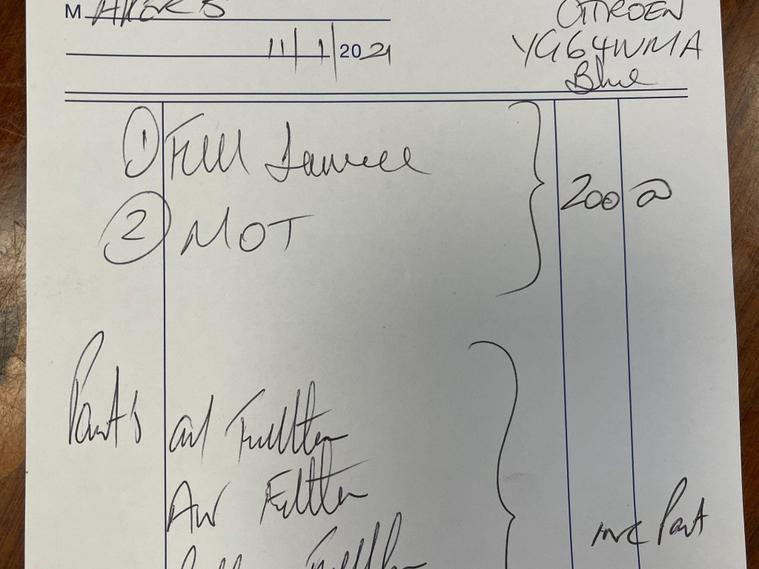 M AKERS
CITROEN
11/1/2021
YG64WMA
Blue
① Full Service
200 00
② MOT
Parts oil Fullter
Air Fullter
Fullter
inc Part